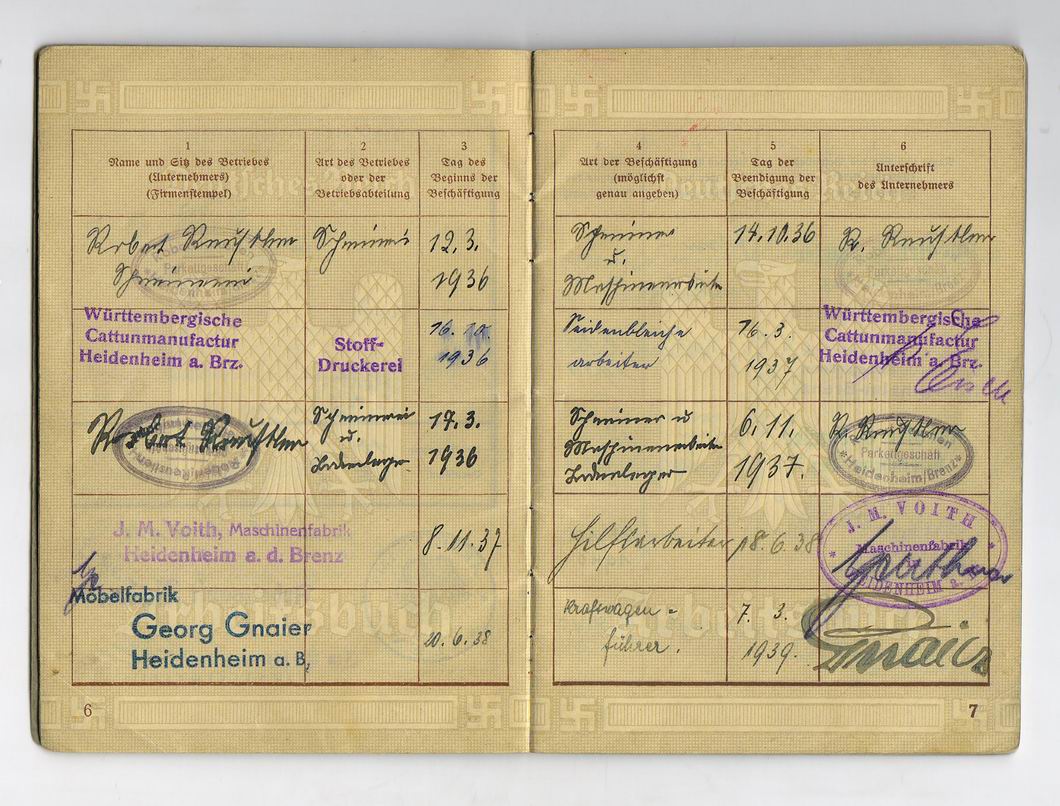 1
Name und Sitz des Betriebes
(Unternehmers)
(Firmenstempel)
2
Art des Betriebes
oder der
Betriebsabteilung
3
Tag des
Beginns der
Beschäftigung
Schreinerei
12.3.
1936
Württembergische
Cattunmanufactur
Heidenheim a. Brz.
Stoff-
Druckerei
16. 10.
1936
Schreinerei
u.
17.3.
1936
J. M. Voith, Maschinenfabrik
Heidenheim a. d. Brenz
8.11.37
Möbelfabrik
Georg Gnaier
Heidenheim a. B.
20.6.38
Arbeitsbuch
6
4
Art der Beschäftigung
(möglichst
genau angeben)
5
Tag der
Beendigung der
Beschäftigung
6
Unterschrift
des Unternehmers
Schreiner
u.
Maschinenarbeiter
14.10.36
Seidenbleiche
arbeiter
16.3.
1937
Württembergische
Cattunmanufactur
Heidenheim a. Brz.
Schreiner u
Maschinenarbeiter
6.11.
1937.
Parkettgeschäft
Heidenheim/Brenz
Hilfsarbeiter
18.6.38
J. M. VOITH
Maschinenfabrik
HEIDENHEIM a.
Kraftwagen-
führer.
7. 3.
1939.
Gnaier
7